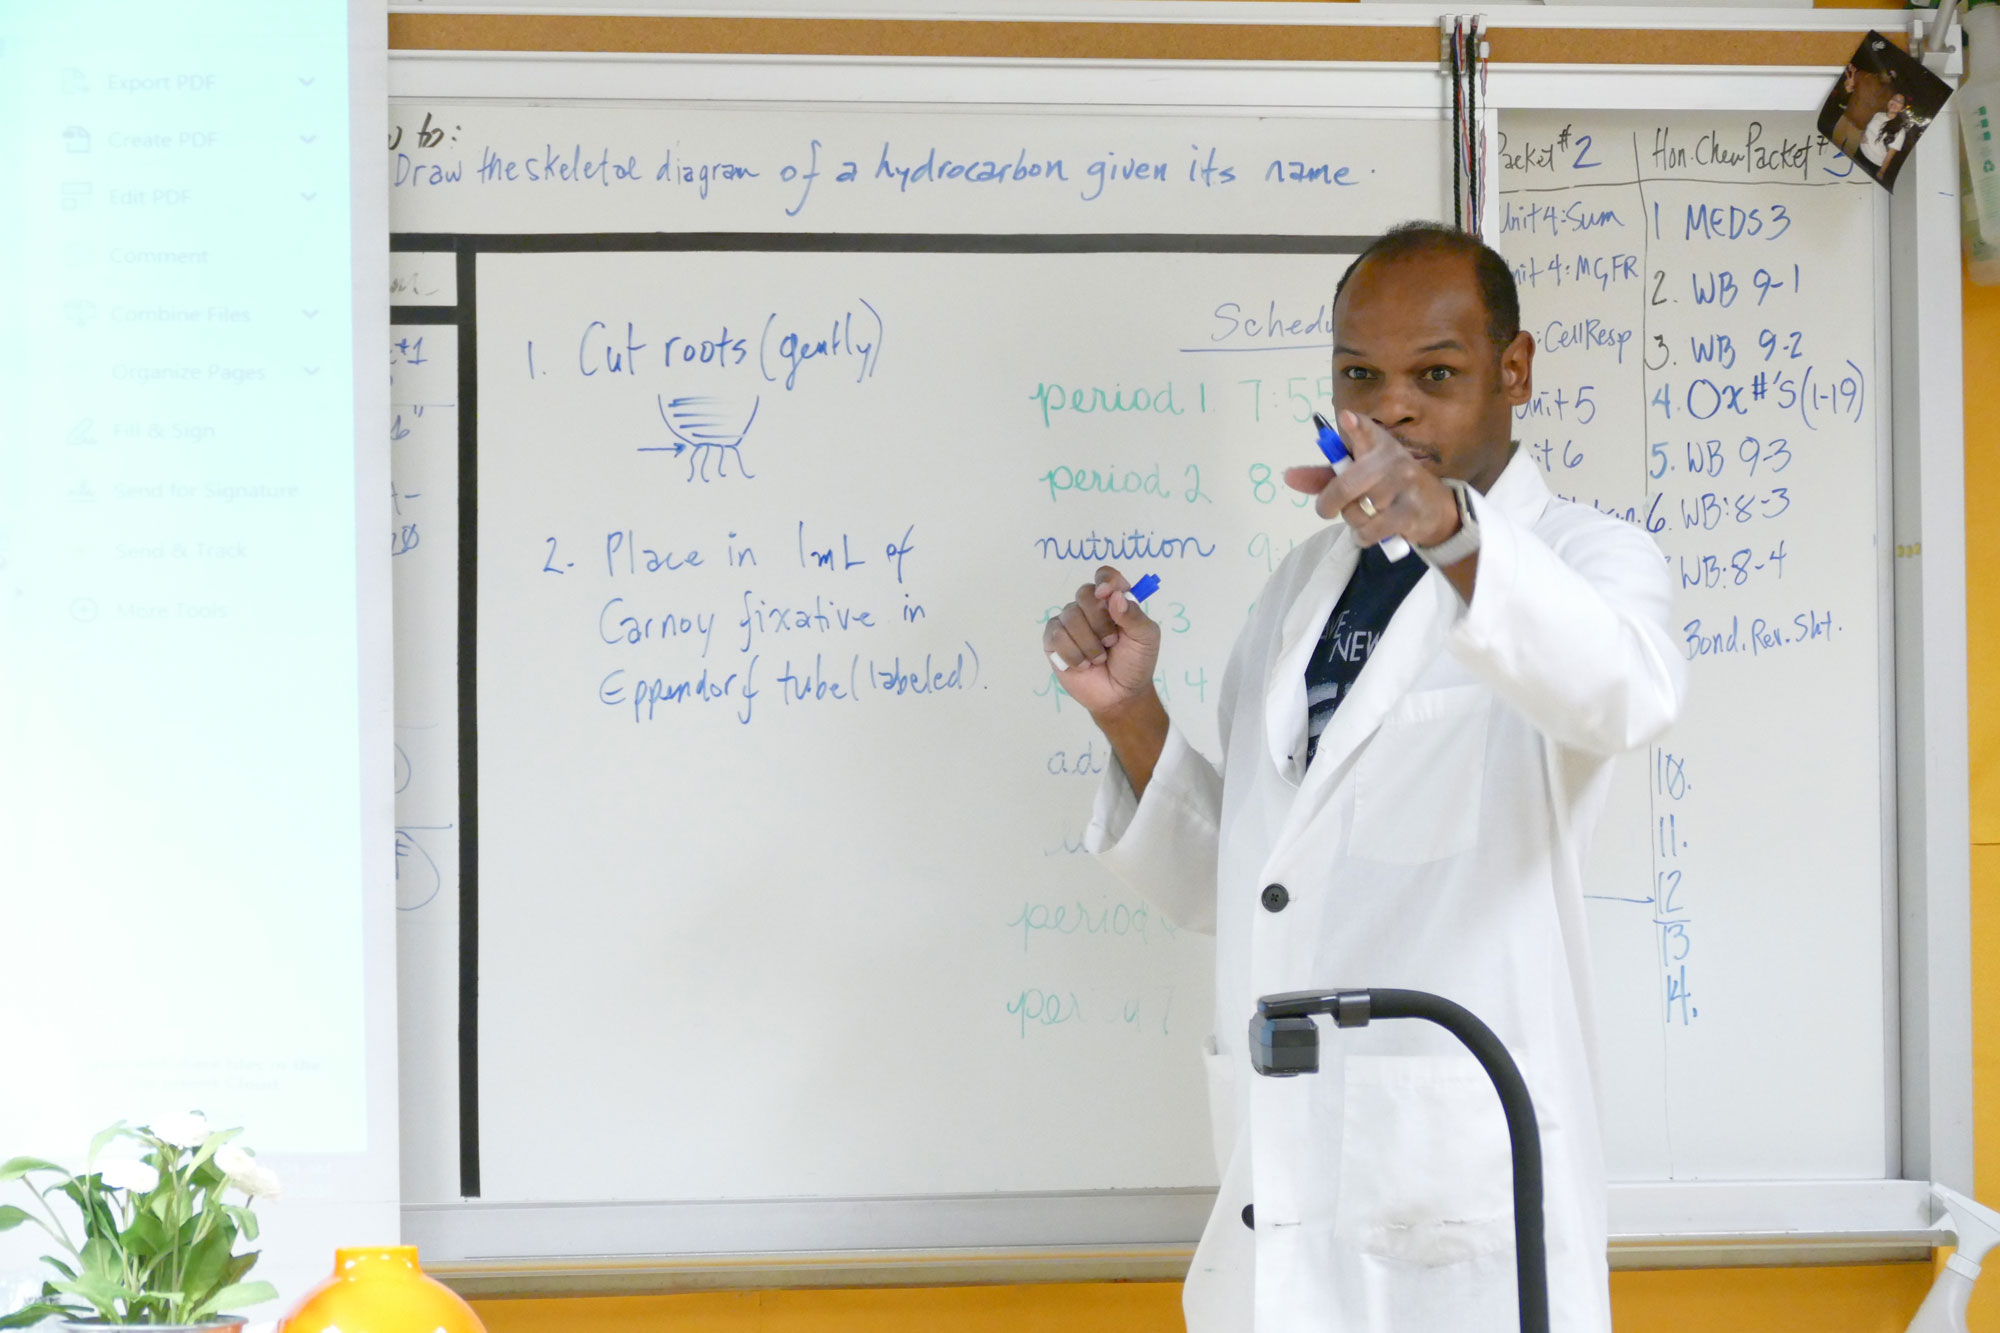 Export PDF
Create PDF
Edit PDF
Comment
Combine Files
Organize Pages
Fill & Sign
Send for Signature
Send & Track
More Tools
to:
Draw the skeletal diagram of a hydrocarbon given its name.
1. Cut roots (gently)
2. Place in 1mL of
Carnoy fixative in
Eppendorf tube (labeled).
period 1 7:55
period 2 8:
nutrition 9:
3
4
period
Packet #2
Unit 4: Sum
Unit 4: MGFR
: CellResp
Unit 5
6
Hon. Chem Packet #3
1 MEDS 3
2. WB 9-1
3. WB 9-2
4. Ox #'s (1-19)
5. WB 9-3
6. WB: 8-3
WB: 8-4
Bond. Rev. Sht.
10.
11.
12
13
14.
NEW